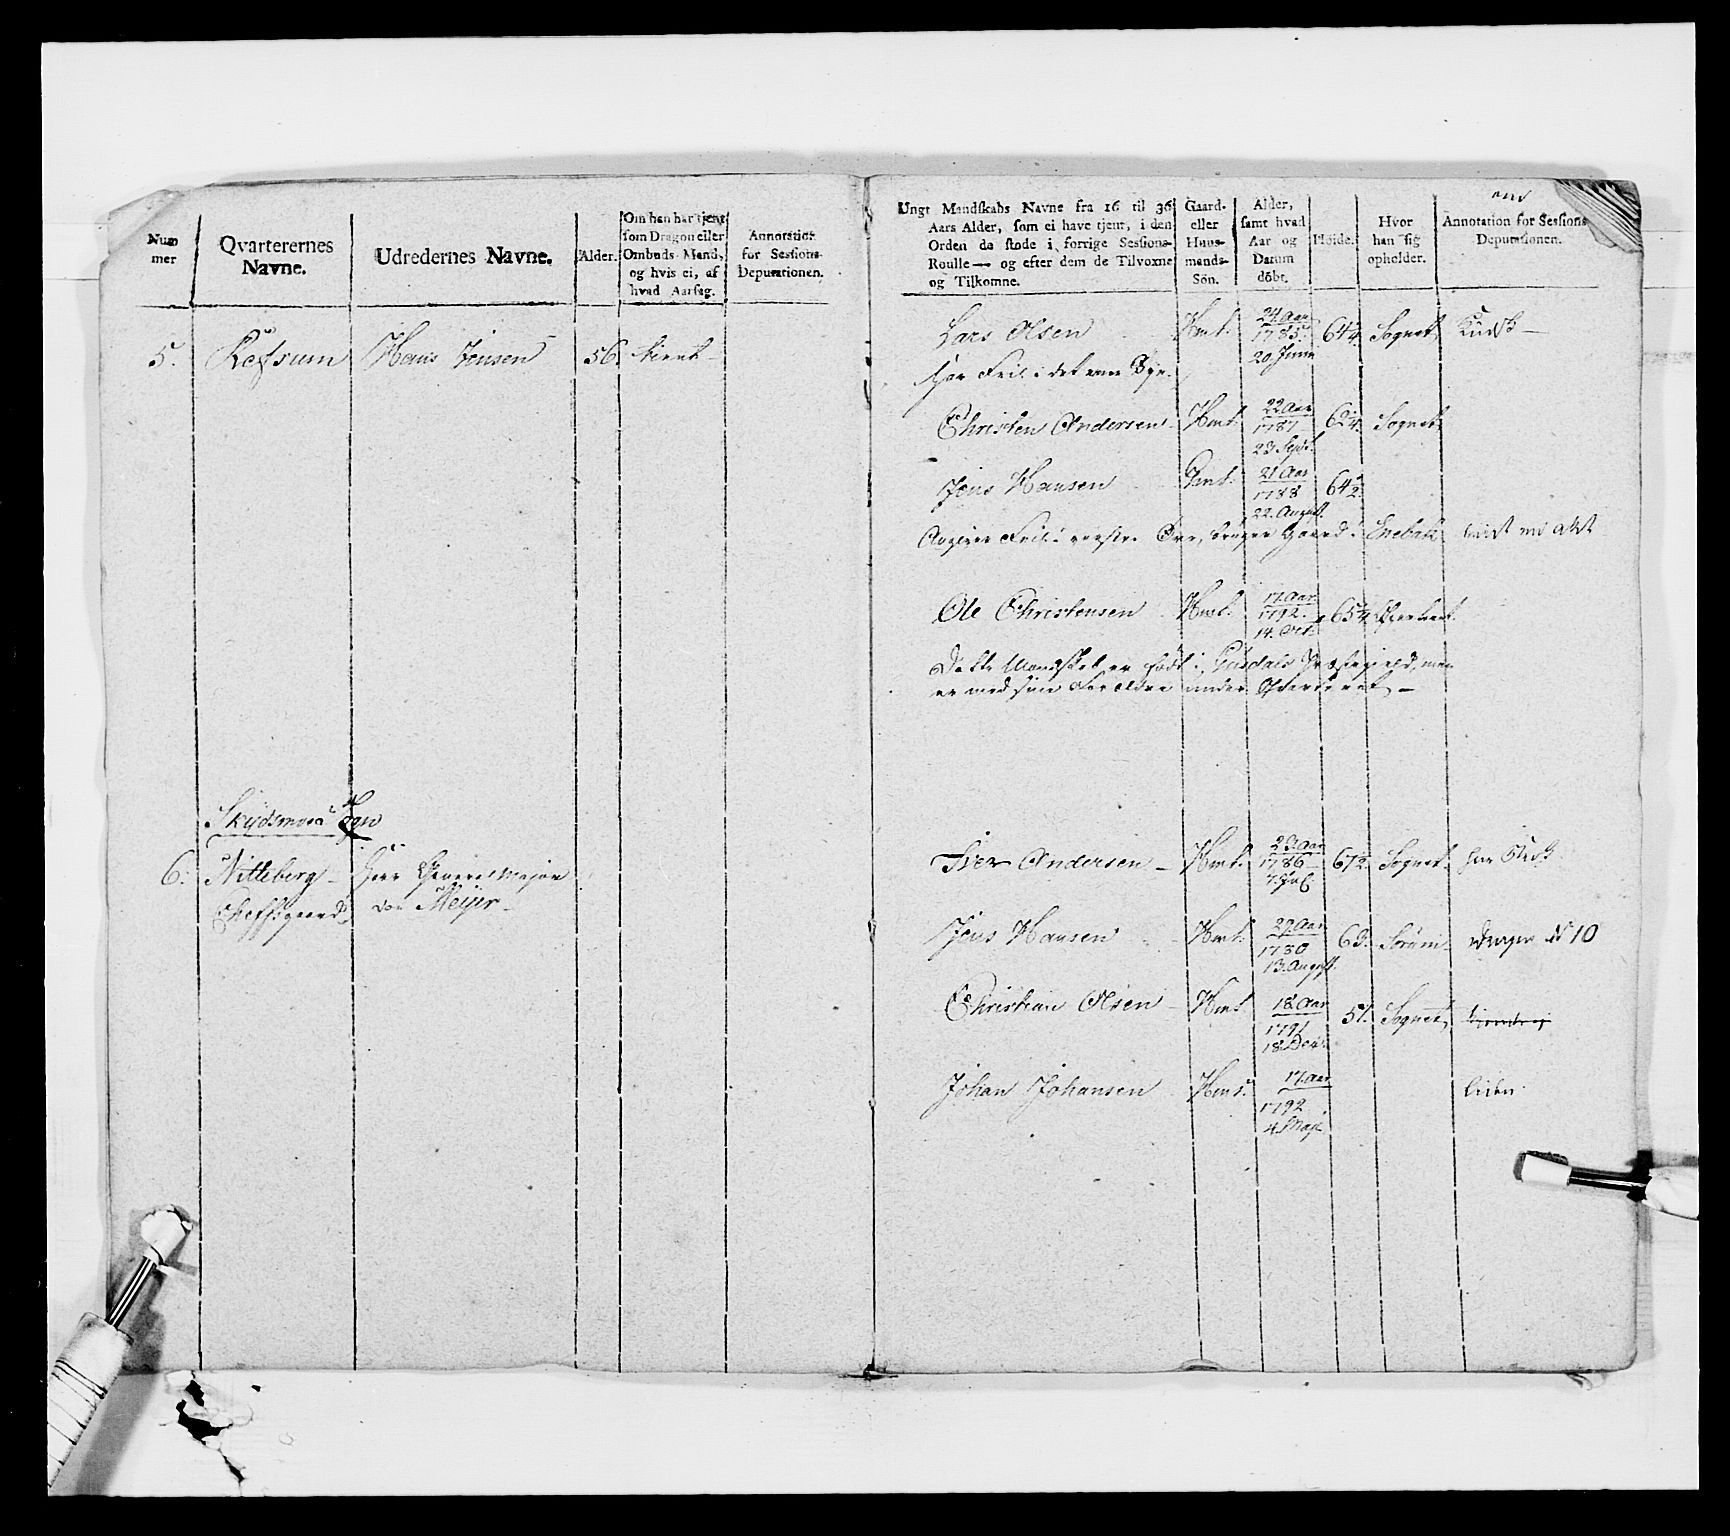 Num
mer
Qvarterernes
Navne.
Udredernes Navne.
Alder.
Om han har tjent
som Dragon eller
Ombuds-Mand,
og hvis ei, af
hvad Aarsag.
Annotation
for Sessions-
Deputationen.
5. Refsum Hans Jensen 56 tient
Skydsmoe Sogn
6. Nitteberg Herr General Major
Cheffsgaard von Meijer
Ungt Mandskabs Navne fra 16 til 36
Aars Alder, som ei have tjent, i den
Orden de stode i forrige Sessions-
Roulle — og efter dem de Tilvoxne
og Tilkomne.
Gaard-
eller
Huus-
mands-
Søn.
Alder,
samt hvad
Aar og
Datum
döbt.
Höide.
Hvor
han sig
opholder.
Annotation for Sessions
Deputationen.
Lars Olsen Hmt. 24 Aar
1785
20 Junii
64 Sognet
Christen Andersen Hmt. 22 Aar
1787
23 Sept.
62 Sognet
Jens Hansen Gmt. 21 Aar
1788
22. August
64 1/2
Enebak
Ole Christensen Hmt. 17 Aar
1792
14. Oct.
65
Dette Mandskab er født i Præstegield, men
er med sine Forældre under
Iver Andersen Hmt. 23 Aar
1786
7. Jul.
67 1/2 Sognet
Jens Hansen Hmt. 29 Aar
1780
13. August
63. Sørum No 10
Christian Olsen Hmt. 18 Aar
1791
18. Dec.
57. Sognet
Johan Johansen Hmt. 17 Aar
1792
4. Maji
liden